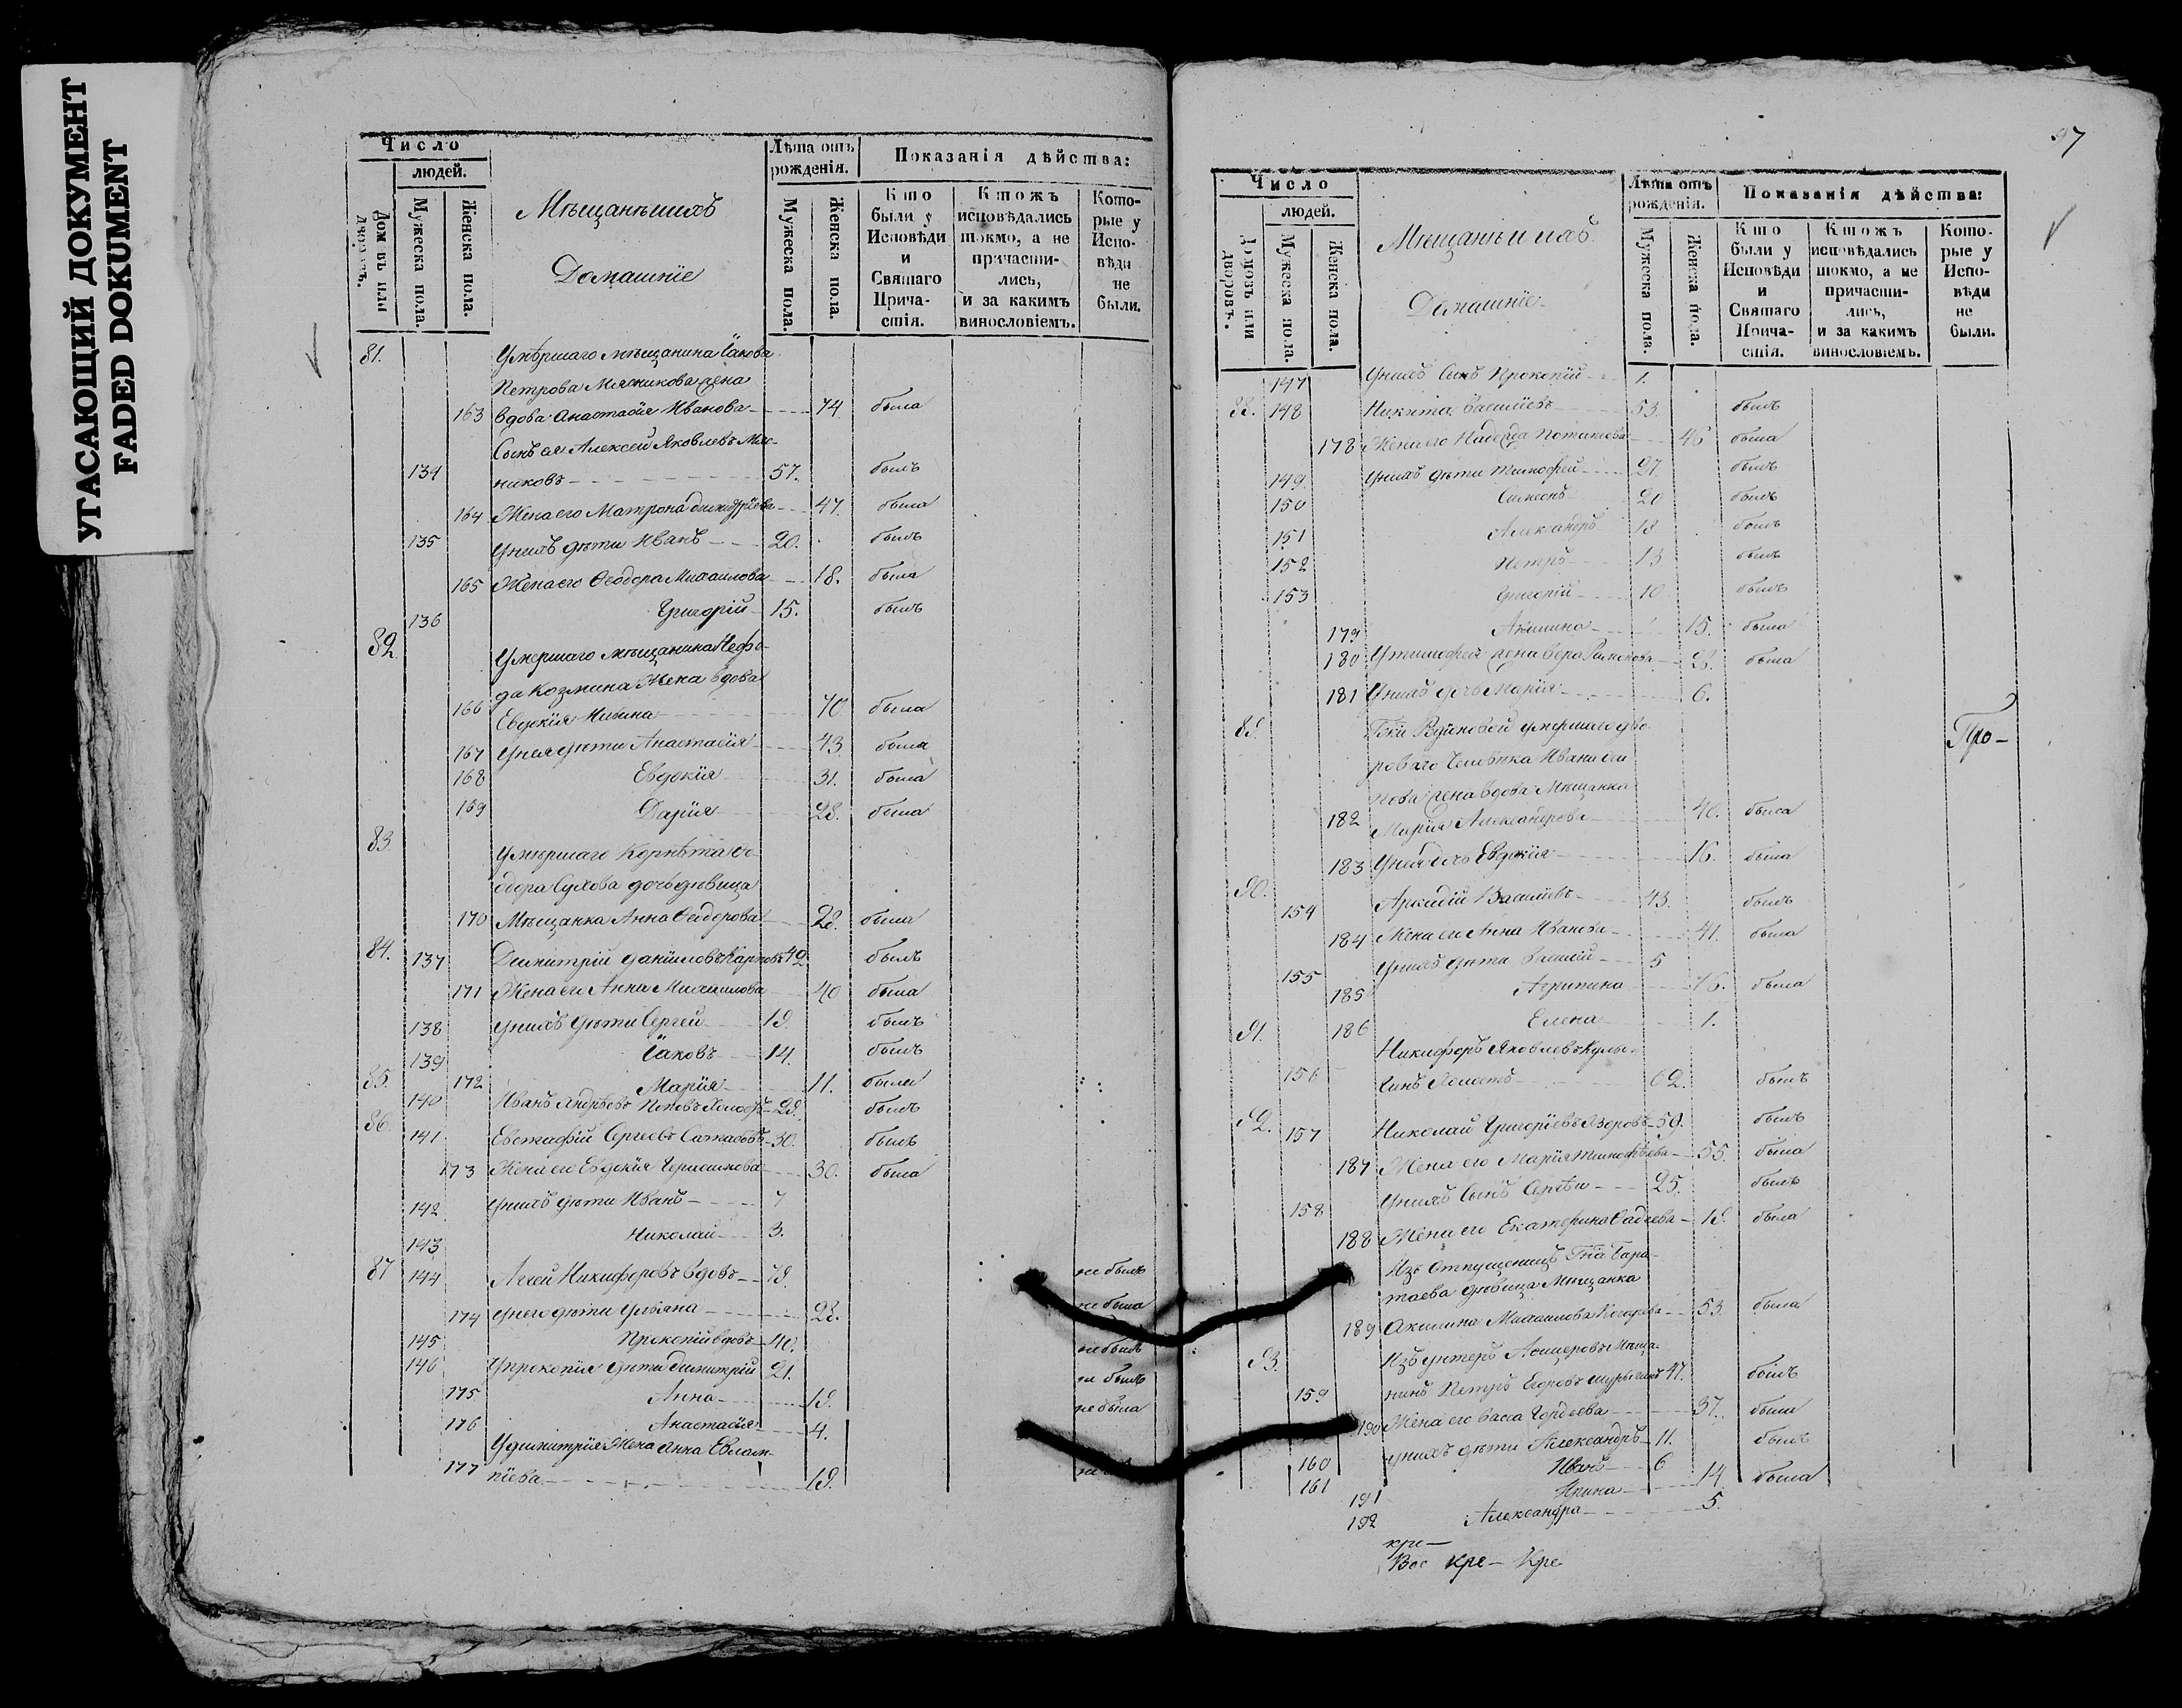 УГАСАЮЩИЙ ДОКУМЕНТ
FADED DOKUMENT
Число
людей.
Домовъ или дворовъ.
Мужеска пола.
Женска пола.
Мѣщанъ и ихъ
Домашнїе
Лѣта отъ рожденія.
Мужеска пола.
Женска пола.
Показанія дѣйства:
Кто были у Исповѣди и Святаго Причастія.
Ктожъ исповѣдались токмо, а не причастились, и за какимъ винословіемъ.
Которые у Исповѣди не были.
81. Умершаго мѣщанина Іакова
Петрова Мясникова жена
163 вдова Анастасїя Иванова 74 была
Сынъ ея Алексей Яковлевъ Мяс-
134 никовъ 57. былъ
164 Жена его Матрона Димитрїева 47. была
135 Унихъ дѣти Иванъ 20. былъ
165 Жена его Ѳеодора Михаилова 18. была
136 Григорїй 15. былъ
82. Умершаго мѣщанина Нефо-
да Козмина Жена вдова
166 Евдокїя 70 была
167 Унея дѣти Анастасїя 43 была
168 Евдокїя 31. была
169 Дарїя 28. была
83. Умершаго Корнета Ѳе-
одора Сухова дочь дѣвица
170 Мѣщанка Анна Ѳеодорова 28. была
84. 137 Димитрїй Данїиловъ Карповъ 42 былъ
171 Жена его Анна Михаилова 40 была
138 Унихъ дѣти Сергей 19. былъ
139 Іаковъ 14. былъ
172 Марїя 11. была
85. 140 Иванъ Андрѣевъ Поповъ Холостъ 29. былъ
86. 141 Евстафїй Сергеевъ 30. былъ
173 Жена его Евдокїя 30. была
142 Унихъ дѣти Иванъ 7
143 Николай 3.
87 144 Никифоровъ вдовъ 79. не былъ
174 Унего дѣти Ульяна 28. не была
145 Прокопїй вдовъ 40. не былъ
146 Упрокопїя дѣти Димитрїй 21. не былъ
175 Анна 19. не была
176 Анастасїя 4.
Удимитрїя Жена Анна Евламп-
177 пїева 19.
97
Число
людей.
Домовъ или дворовъ.
Мужеска пола.
Женска пола.
Мѣщанъ и ихъ
Домашнїе
Лѣта отъ рожденія.
Мужеска пола.
Женска пола.
Показанія дѣйства:
Кто были у Исповѣди и Святаго Причастія.
Ктожъ исповѣдались токмо, а не причастились, и за какимъ винословіемъ.
Которые у Исповѣди не были.
147 Унихъ Сынъ Прокопїй 1.
88. 148 Никита Васильевъ 53. былъ
178 Жена его Надежда 46 была
149 Унихъ дѣти Тимофей 27. былъ
150 Симеонъ 20 былъ
151 Александръ 18 былъ
152 Петръ 13 былъ
153 Григорїй 10 былъ
179 Акилина 15. была
180 Утимофея жена Вера 28. была
181 Унихъ дочь Марїя 6.
89. умершаго дво-
роваго Человѣка Ивана
жена вдова Мѣщанка
182 Марїя Александрова 40. была
183 Унея дочь Евдокїя 16. была
Про-
90. 154 Аркадїй Васильевъ 43. былъ
184 Жена его Анна Иванова 41. была
155 Унихъ дѣти 5
185 Агрипина 16. была
186 Елена 1.
91. Никифоръ Яковлевъ
156 Холостъ 62. былъ
92. 157 Николай Григорїевъ Азоровъ 59. былъ
187 Жена его Марїя Тимофѣева 55. была
158 Унихъ Сынъ Сергѣй 25. былъ
188 Жена его Екатерина Фадеева 19. была
Изъ Отпущеницъ
дѣвица Мѣщанка
189 Акилина Михаилова 53. была
93. Изъ унтеръ Афицеровъ Мѣща-
159 нинъ Петръ Егоровъ 47. былъ
190 Жена его Васа Гордеева 37. была
160 Унихъ дѣти Александръ 11. былъ
161 Иванъ 6
191 Ирина 14 была
192 Александра 5.
кре—
Вос кре— Кре